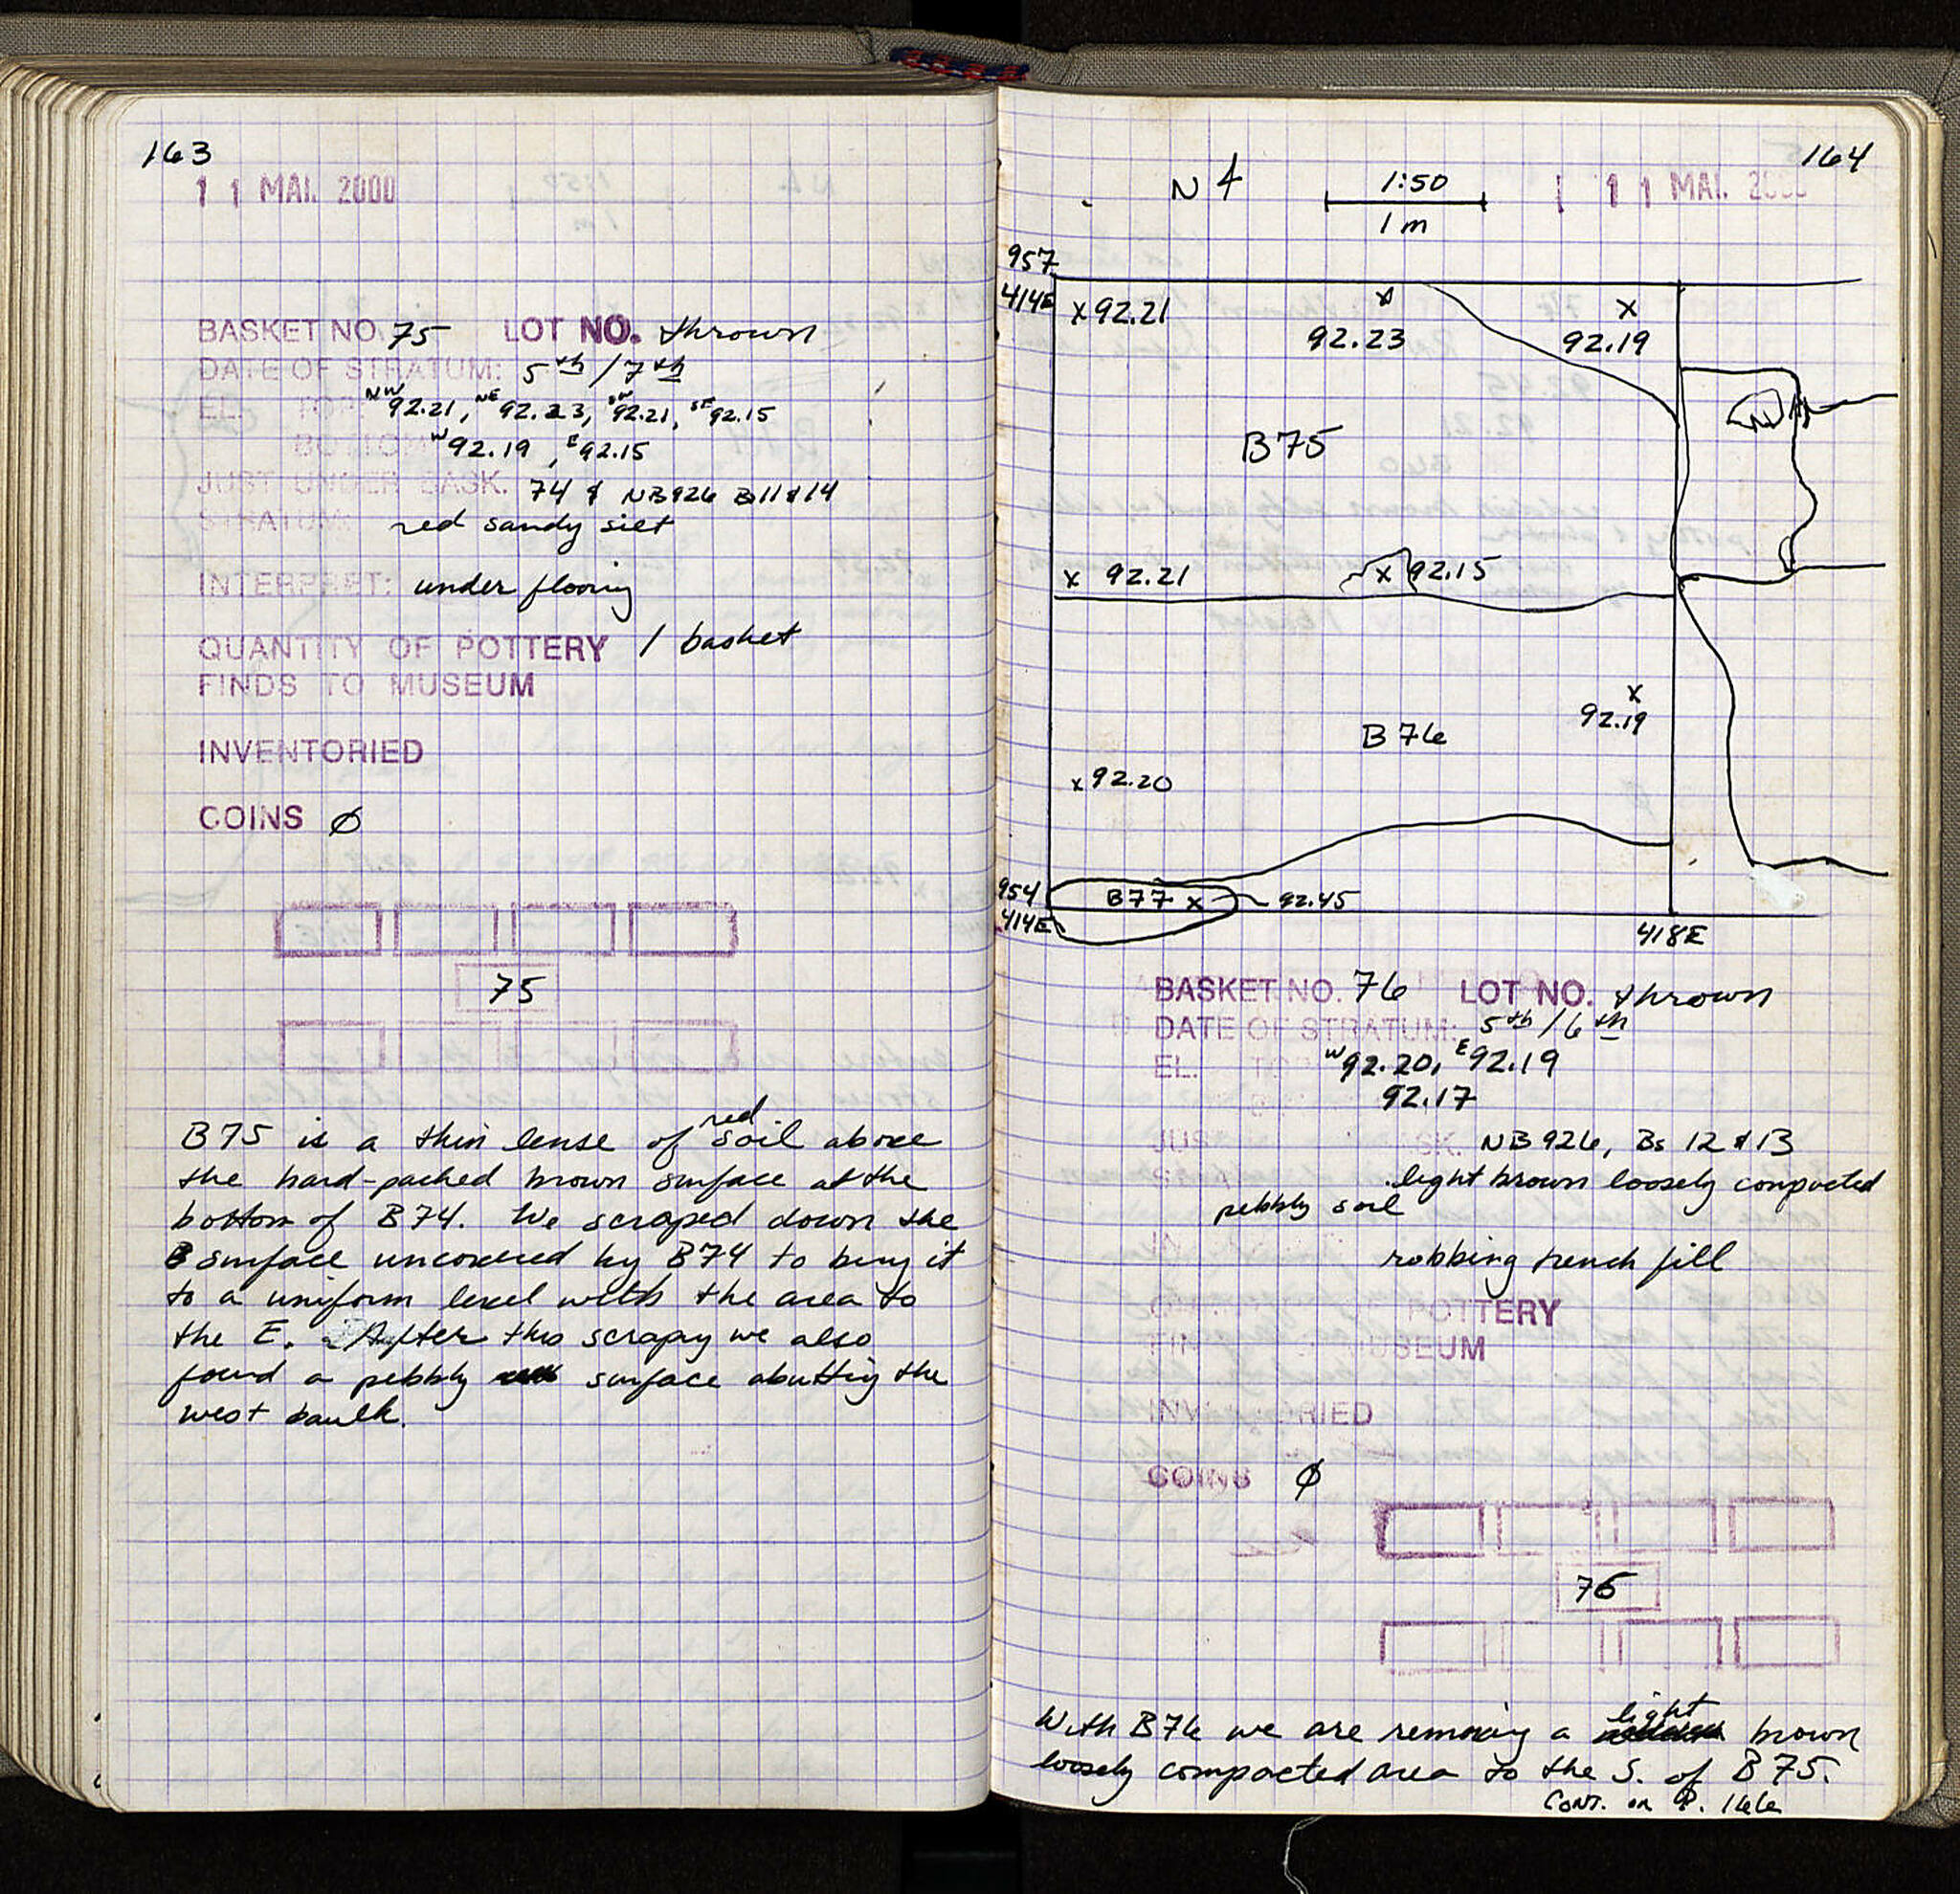 163
1 1 MAI. 2000
BASKET NO. 75 LOT NO. thrown
DATE OF STRATUM: 5th / 7th
EL. TOP NW 92.21, NE 92.23, SW 92.21, SE 92.15
BOTTOM W 92.19, E 92.15
JUST UNDER BASK. 74 & NB926 Bs 11 & 14
STRATUM: red sandy silt
INTERPRET: under flooring
QUANTITY OF POTTERY 1 basket
FINDS TO MUSEUM
INVENTORIED
COINS Ø
75
B75 is a thin lense of red soil above
the hard-packed brown surface at the
bottom of B74. We scraped down the
surface uncovered by B74 to bring it
to a uniform level with the area to
the E. After this scraping we also
found a pebbly surface abutting the
west baulk.
164
1 1 MAI. 2000
N
1:50
1 m
957
414E
x 92.21
x
92.23
x
92.19
B75
x 92.21
x 92.15
x
92.19
B76
x 92.20
954
414E
B77 x
92.45
418E
BASKET NO. 76 LOT NO. thrown
DATE OF STRATUM: 5th / 6th
EL. TOP W 92.20, E 92.19
92.17
JUST SK. NB926, Bs 12 & 13
light brown loosely compacted
pebbly soil
robbing trench fill
POTTERY
MUSEUM
INVENTORIED
COINS Ø
76
With B76 we are removing a light brown
loosely compacted area to the S. of B75.
CONT. on P. 166